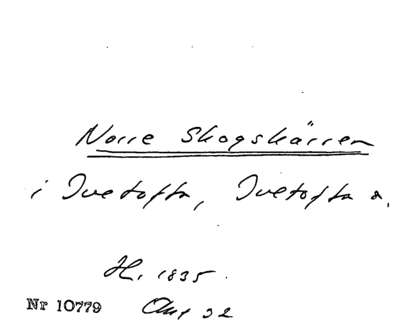 Norre Skogskärren
i Ivetofta, Ivetofta s.
H. 1835.
Nr 10779 Akt 32